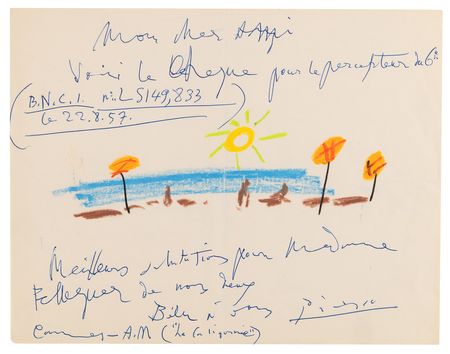 Mon cher
Voici le cheque pour le percepteur du 6e
(B.N.C.I. no LS149,833
le 22.8.57.)
Meilleurs salutations pour Madame
de nous deux
Bien à vous Picasso
Cannes - A.M ("La Californie")